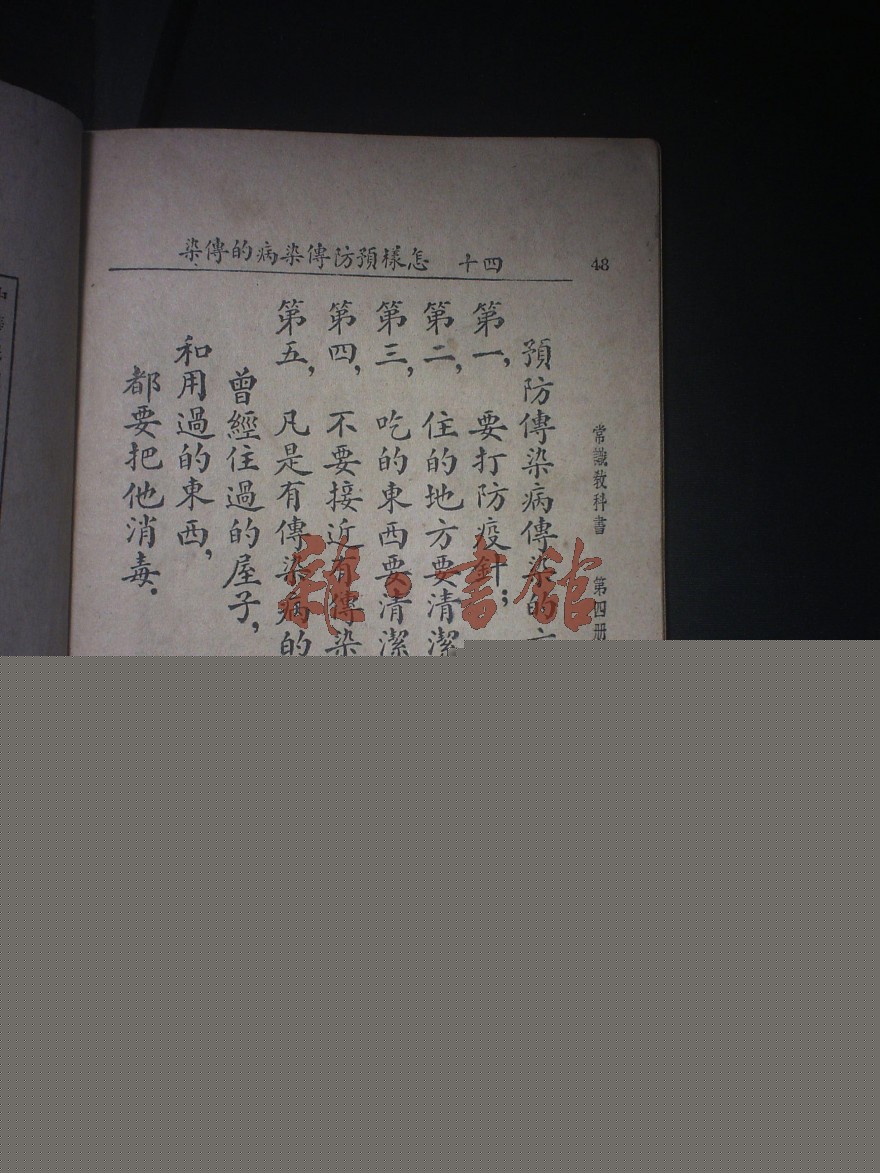 48
四十 怎樣預防傳染病的傳染
常識教科書 第四册
預防傳染病傳染的
第一，要打防疫針；
第二，住的地方要清潔
第三，吃的東西要清潔
第四，不要接近有傳染
第五，凡是有傳染病的
曾經住過的屋子，
和用過的東西，
都要把他消毒．
雜·書館